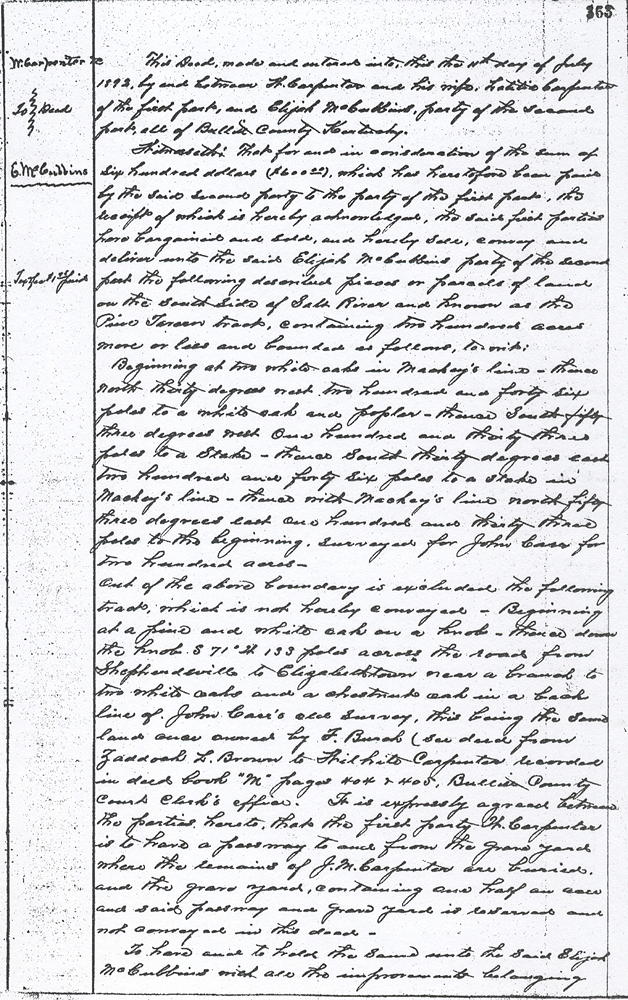 365
W. Carpenter &c
To Deed
E. McCubbins
Tax fee 1st paid
This Deed, made and entered into, this the 11th day of July
1893, by and between W. Carpenter and his wife, Carpenter
of the first part, and Elijah McCubbins, party of the second
part, all of Bullitt County Kentucky.
Witnesseth: That for and in consideration of the sum of
Six hundred dollars ($600 00), which has heretofore been paid
by the said second party to the party of the first part, the
receipt of which is hereby acknowledged, the said first parties
have bargained and sold, and hereby sell, convey and
deliver unto the said Elijah McCubbins party of the second
part the following described pieces or parcels of land
on the South Side of Salt River and known as the
Pine Tavern tract, containing two hundred acres
more or less and bounded as follows, to-wit:
Beginning at two white oaks in Mackey's line - thence
North thirty degrees west two hundred and forty six
poles to a white oak and poplar - thence South fifty
three degrees west One hundred and thirty three
poles to a Stake - thence South thirty degrees east
two hundred and forty six poles to a stake in
Mackey's line - thence with Mackey's line north fifty
three degrees east One hundred and thirty three
poles to the beginning. Surveyed for John Carr for
two hundred acres -
Out of the above boundary is excluded the following
tract, which is not hereby conveyed - Beginning
at a pine and white oak on a knob - thence down
the knob S 71° W 133 poles across the road from
Shepherdsville to Elizabethtown near a branch to
two white oaks and a chestnut oak in a back
line of John Carr's old Survey, this being the same
land once owned by F. Burch (see deed from
Zaddock L. Brown to Wilhite Carpenter recorded
in deed book "M" pages 404 & 405, Bullitt County
Court Clerk's office. It is expressly agreed between
the parties hereto, that the first party W. Carpenter
is to have a passway to and from the grave yard
where the remains of J. M. Carpenter are buried,
and the grave yard, containing one half an acre
and said passway and grave yard is reserved and
not conveyed in this deed -
To have and to hold the same unto the said Elijah
McCubbins with all the improvements belonging